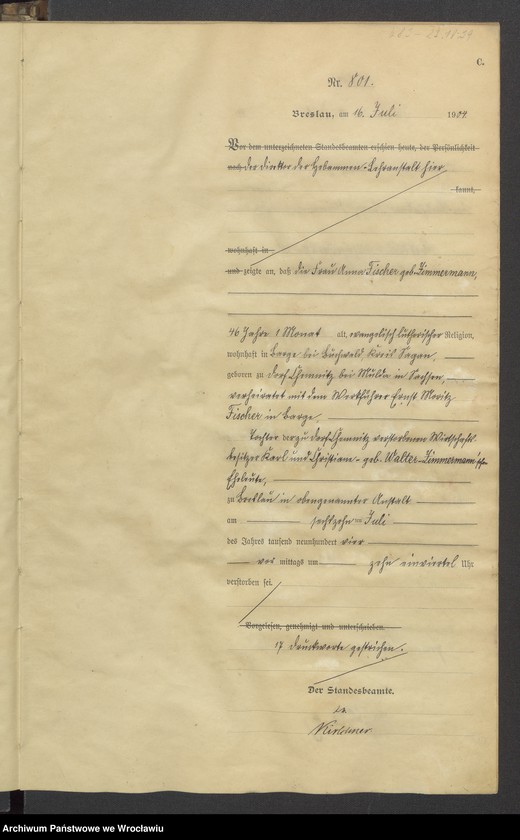 C.
Nr. 801.
Breslau, am 16. Juli 1904
Vor dem unterzeichneten Standesbeamten erschien heute, der Persönlichkeit
nach der Direktor der Hebammen-Lehranstalt hier
kannt,
wohnhaft in
und zeigte an, daß die Frau Anna Fischer geb. Zimmermann,
46 Jahre 1 Monat alt, evangelisch lutherischer Religion,
wohnhaft in Barge bei Buchwald Kreis Sagan,
geboren zu Dorf Chemnitz bei Mulda in Sachsen,
verheiratet mit dem Werkführer Ernst Moritz
Fischer in Barge,
Tochter der zu Dorf Chemnitz verstorbenen Wirtschafts-
besitzer Karl und Christiane geb. Walter-Zimmermann'schen
Eheleute,
zu Breslau in obengenannter Anstalt
am sechzehnten Juli
des Jahres tausend neunhundert vier
vor mittags um zehn einviertel Uhr
verstorben sei.
Vorgelesen, genehmigt und unterschrieben.
17 Druckworte gestrichen.
Der Standesbeamte.
Kirchner
Archiwum Państwowe we Wrocławiu